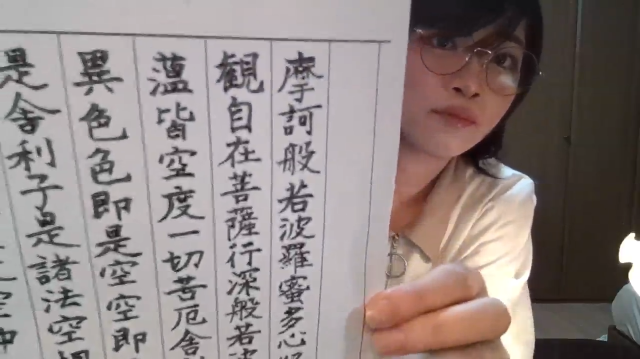 摩訶般若波羅蜜多心
観自在菩薩行深般若波
薀皆空度一切苦厄舎
異色色即是空空即
是舎利子是諸法空